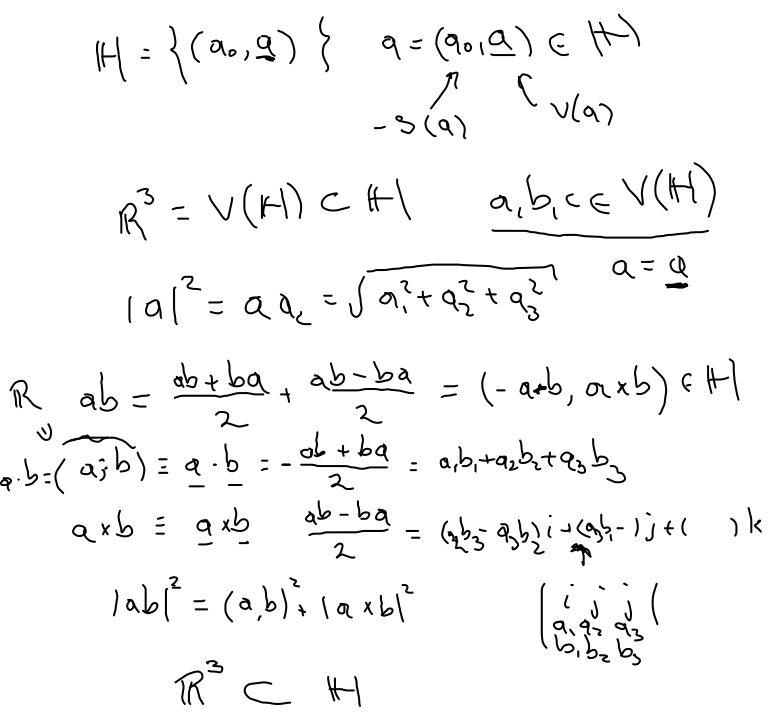 ℍ = {(a₀, a̲)} a = (a₀, a̲) ∈ ℍ
-S(a) V(a)
ℝ³ = V(ℍ) ⊂ ℍ a, b, c ∈ V(ℍ)
a = a̲
|a|² = a a_c = √(a₁² + a₂² + a₃²)
ℝ ab = (ab + ba)/2 + (ab - ba)/2 = (-a·b, a×b) ∈ ℍ
a·b = (a, b) ≡ a̲ · b̲ = -(ab + ba)/2 = a₁b₁ + a₂b₂ + a₃b₃
a×b ≡ a̲ × b̲ (ab - ba)/2 = (a₂b₃ - a₃b₂)i + (a₃b₁ - )j + ( )k
|ab|² = (a,b)² + |a×b|² | i j j |
a₁ a₂ a₃
b₁ b₂ b₃
ℝ³ ⊂ ℍ